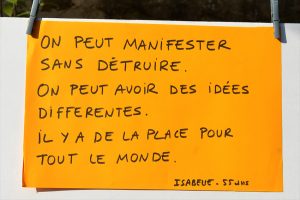 ON PEUT MANIFESTER
SANS DÉTRUIRE.
ON PEUT AVOIR DES IDÉES
DIFFERENTES.
IL Y A DE LA PLACE POUR
TOUT LE MONDE.
ISABELLE - 55 ans